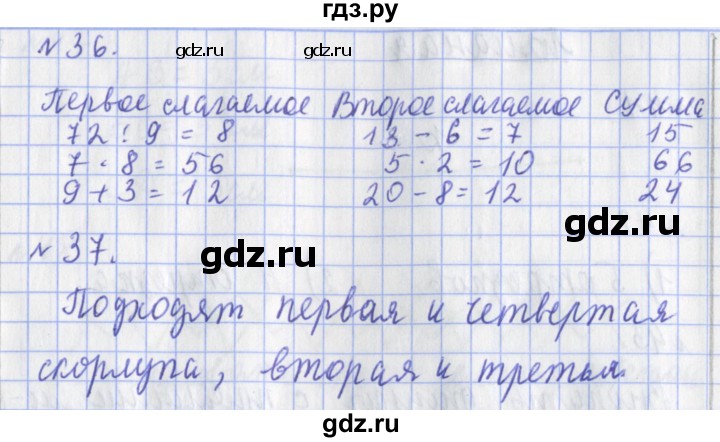 гдз.ру
№ 36. gdz.ru gdz.ru
Первое слагаемое Второе слагаемое Сумма
72 : 9 = 8 13 - 6 = 7 15
7 · 8 = 56 5 · 2 = 10 66
9 + 3 = 12 20 - 8 = 12 24
gdz.ru
№ 37. gdz.ru
Подходят первая и четвертая
скорлупа, вторая и третья
gdz.ru